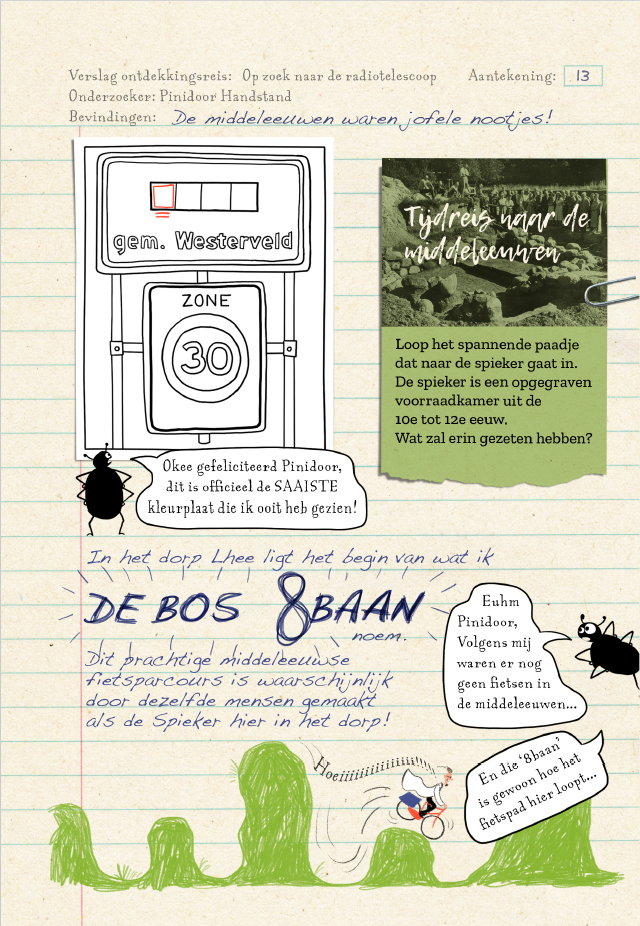 Verslag ontdekkingsreis: Op zoek naar de radiotelescoop Aantekening: 13
Onderzoeker: Pinidoor Handstand
Bevindingen: De middeleeuwen waren jofele nootjes!
gem. Westerveld
ZONE
30
Tijdreis naar de
middeleeuwen
Loop het spannende paadje
dat naar de spieker gaat in.
De spieker is een opgegraven
voorraadkamer uit de
10e tot 12e eeuw.
Wat zal erin gezeten hebben?
Okee gefeliciteerd Pinidoor,
dit is officieel de SAAISTE
kleurplaat die ik ooit heb gezien!
In het dorp Lhee ligt het begin van wat ik
DE BOS 8BAAN
noem.
Dit prachtige middeleeuwse
fietsparcours is waarschijnlijk
door dezelfde mensen gemaakt
als de Spieker hier in het dorp!
Euhm
Pinidoor,
Volgens mij
waren er nog
geen fietsen in
de middeleeuwen...
Hoeiiiiiiiiiiiiiii!
En die '8baan'
is gewoon hoe het
fietspad hier loopt...